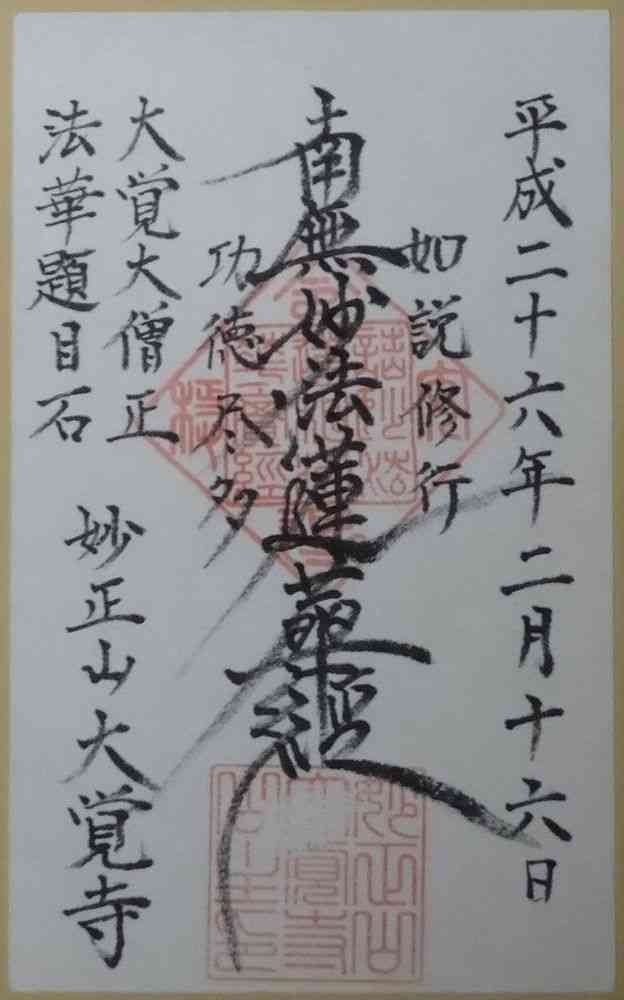 平成二十六年二月十六日
如説修行
南無妙法蓮華経
功徳尽多
大覚大僧正
法華題目石
妙正山大覚寺